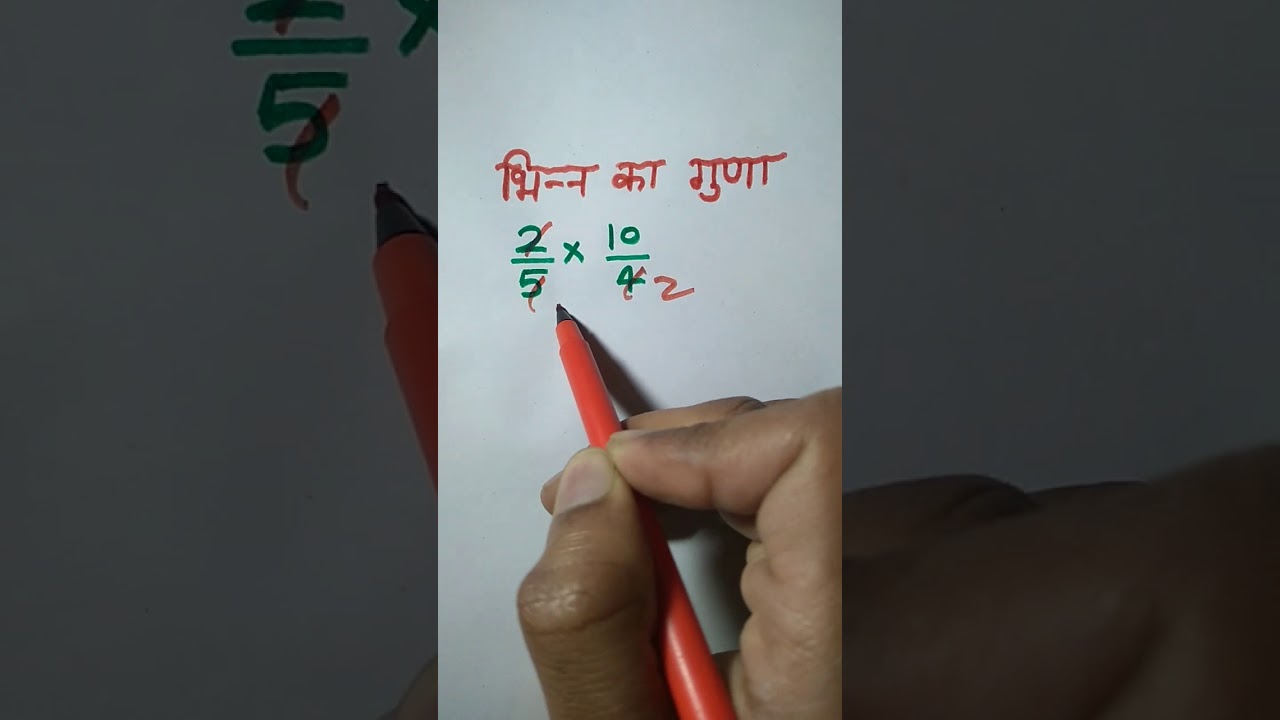 भिन्न का गुणा
2/5 × 10/4 2